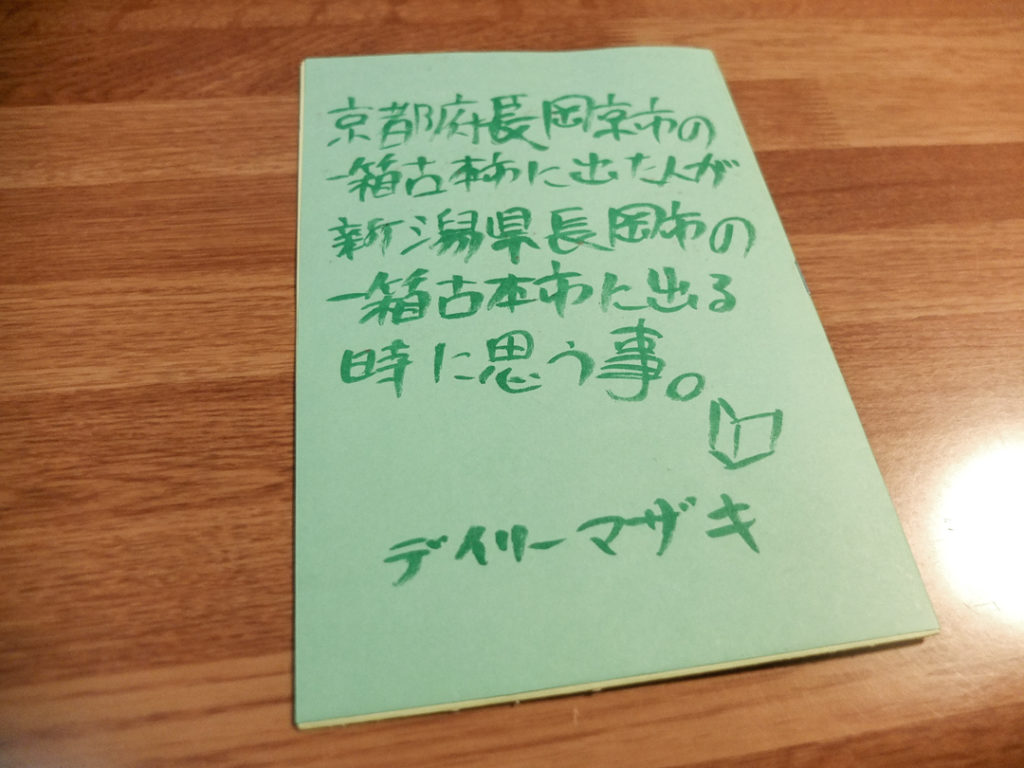 京都府長岡京市の
一箱古本市に出た人が
新潟県長岡市の
一箱古本市に出る
時に思う事。
デイリーマザキ